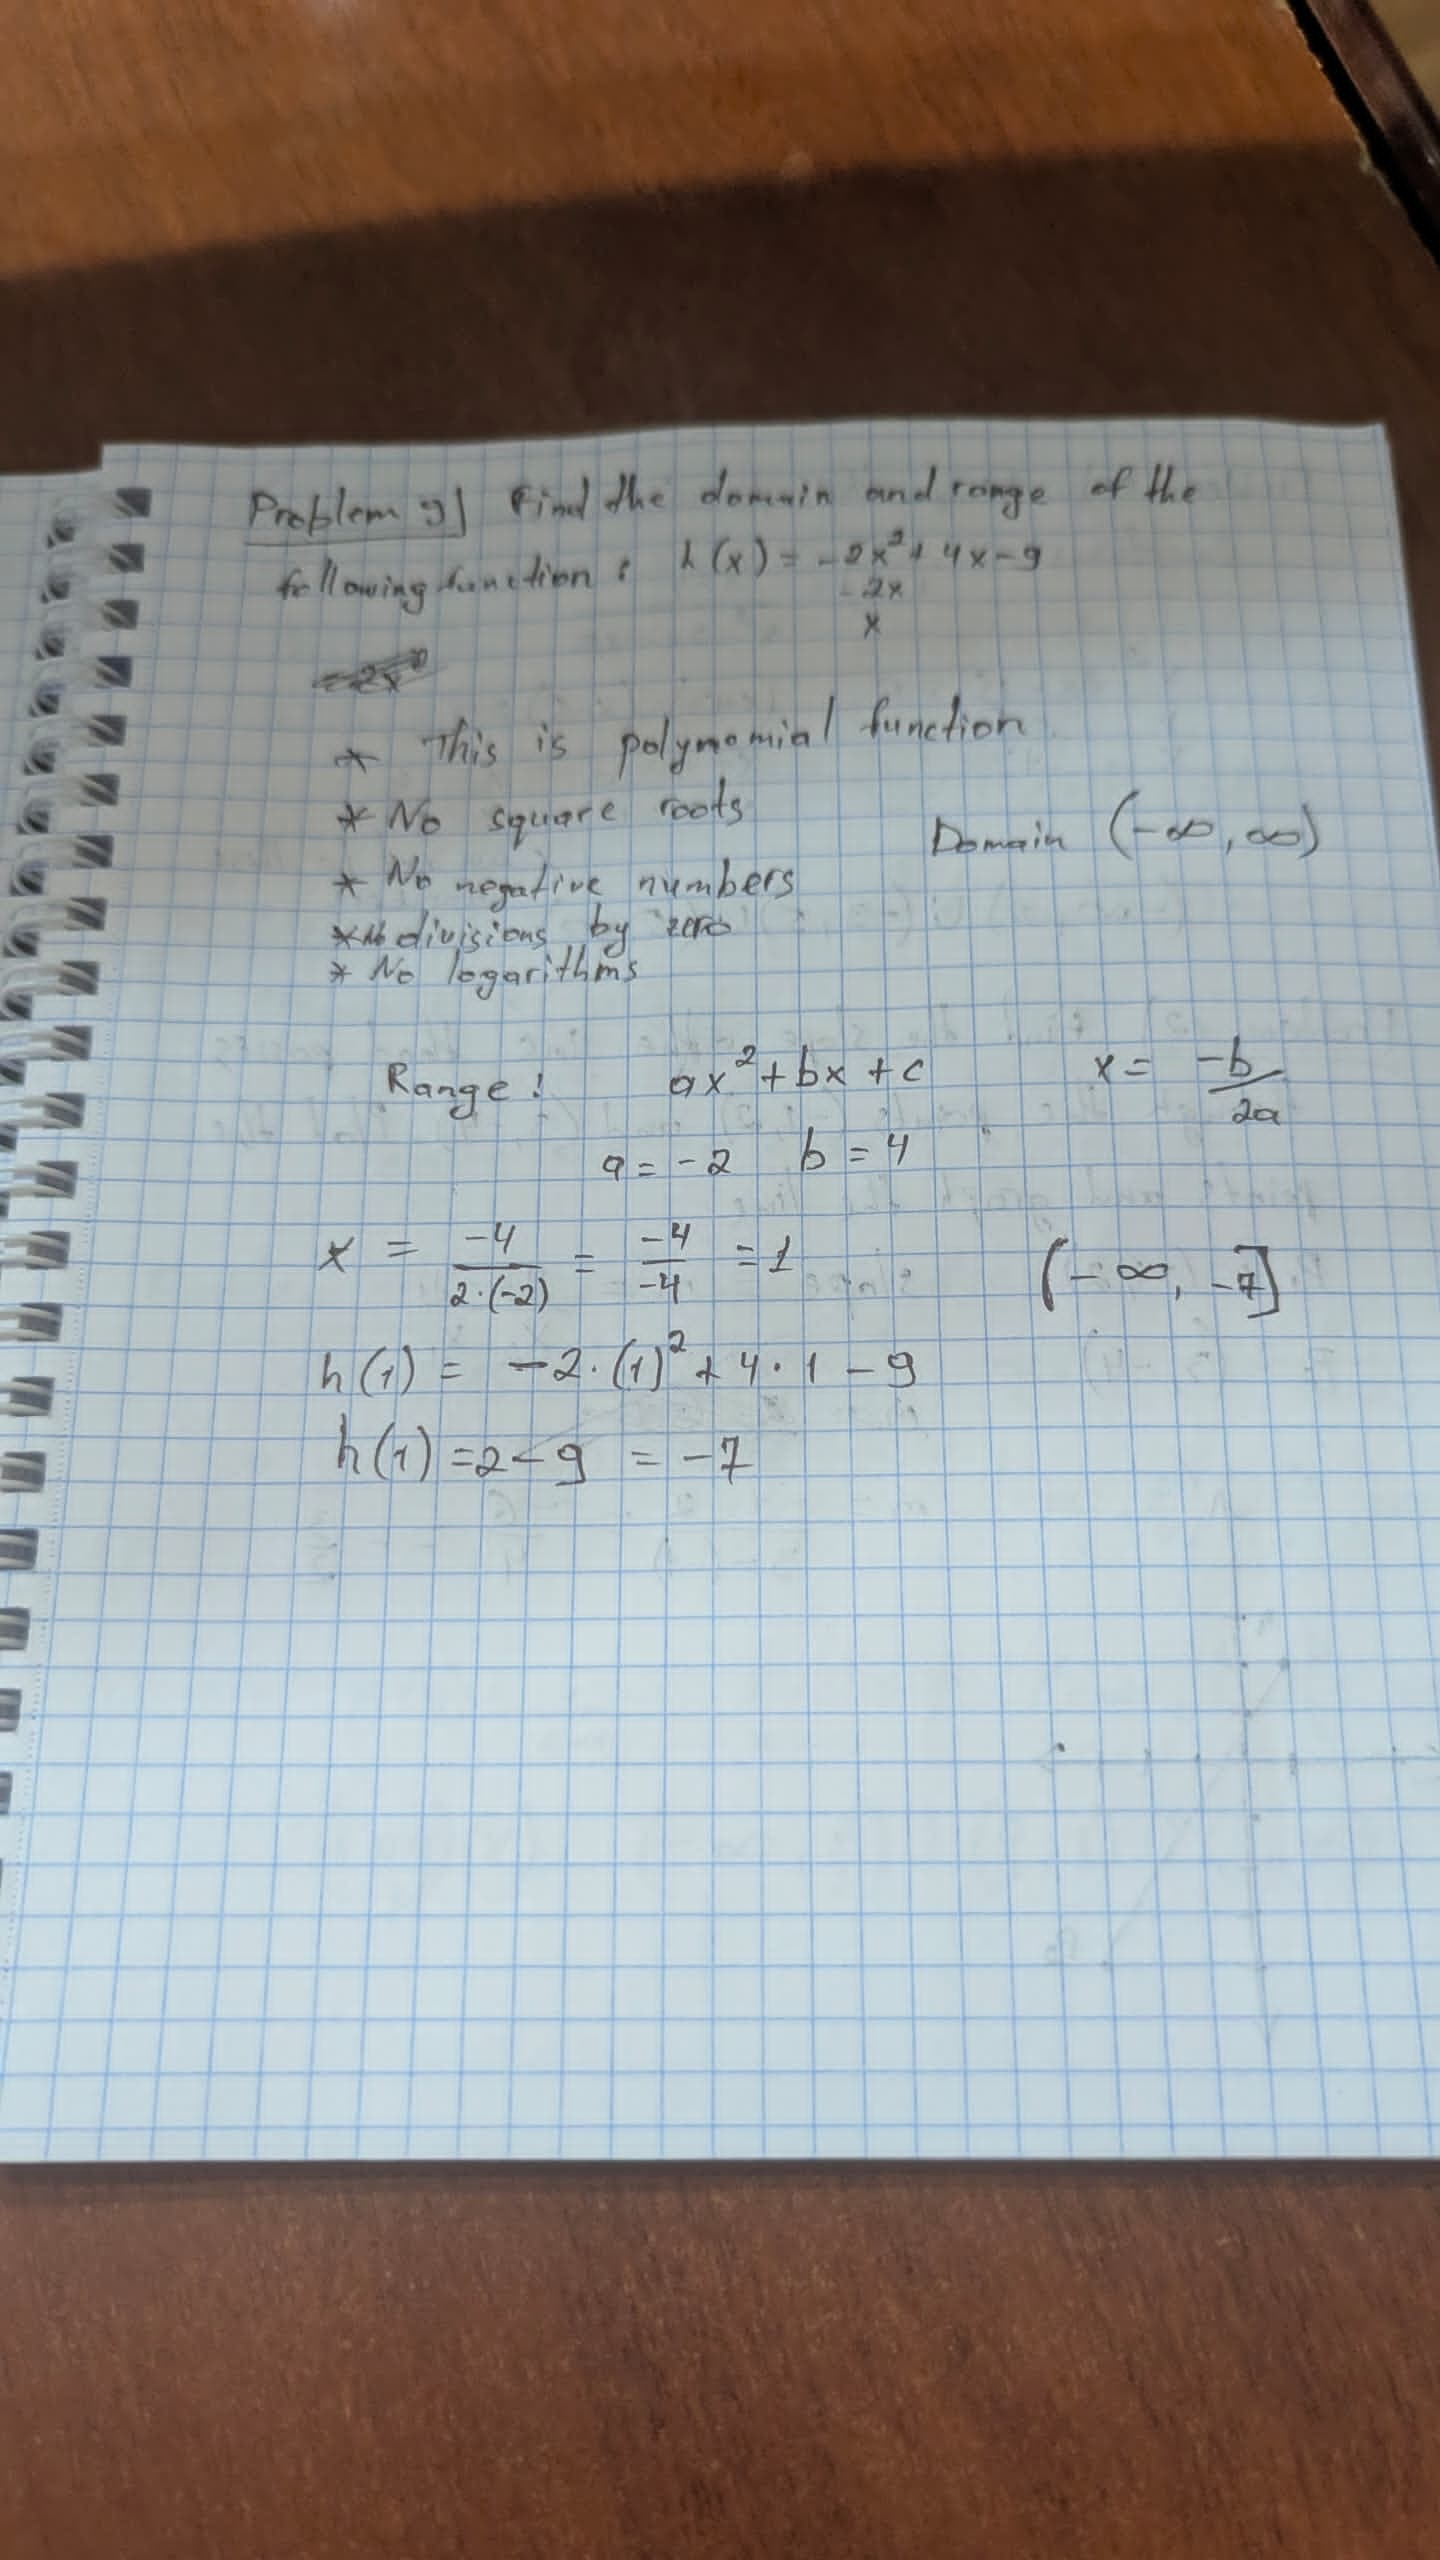 Problem 9] Find the domain and range of the
following function : h(x) = -2x²+ 4x-9
-2x
x
* This is polynomial function
* No square roots
* No negative numbers
Domain (-∞, ∞)
*No divisions by zero
* No logarithms
Range! ax²+bx+c x = -b/2a
a = -2 b = 4
x = -4/2·(-2) = -4/-4 = 1 (-∞, -7]
h(1) = -2·(1)² + 4·1 - 9
h(1) = 2-9 = -7